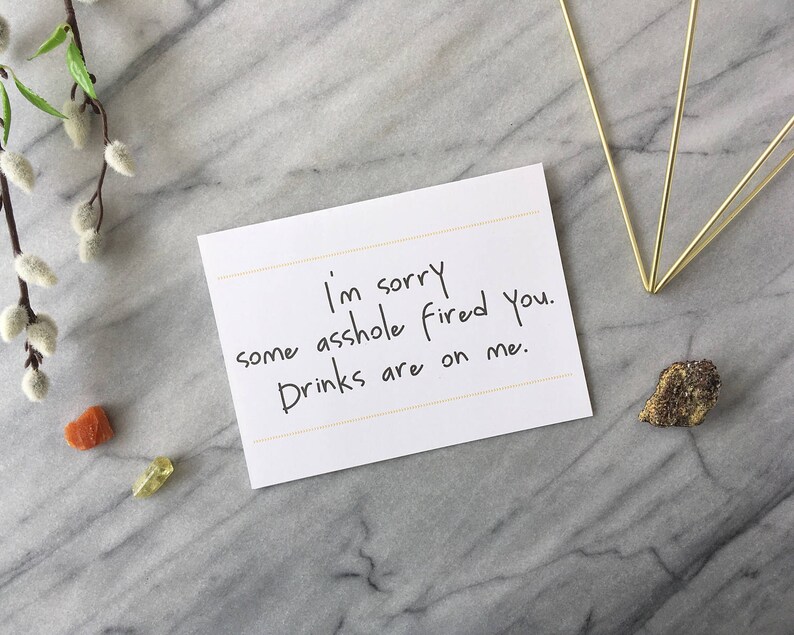 I'm sorry
some asshole fired you.
Drinks are on me.